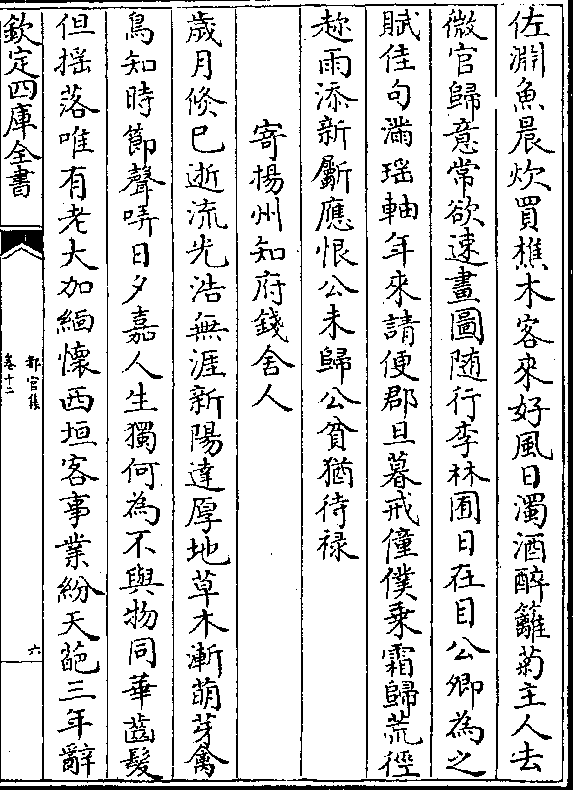 佐淵魚晨炊買樵木客來好風日濁酒醉籬菊主人去
微官歸意常欲速畫圖随行李林圃日在目公卿為之
賦佳句滿瑶軸年來請便郡旦暮戒僮僕乗霜歸荒徑
趂雨添新斸應恨公未歸公貧猶待禄
寄楊州知府錢舍人
歲月倐已逝流光浩無涯新陽達厚地草木漸萌芽禽
鳥知時節聲哢日夕嘉人生獨何為不與物同華齒髮
但揺落唯有老大加緬懷西垣客事業紛天葩三年辭
欽定四庫全書
都官集
卷十二
六